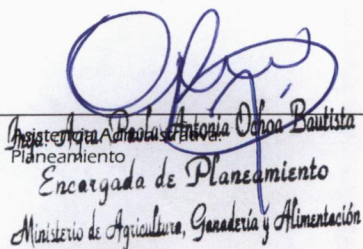 Inga. Agra. Paola Antonia Ochoa Bautista
Asistencia Administrativa.
Planeamiento
Encargada de Planeamiento
Ministerio de Agricultura, Ganadería y Alimentación